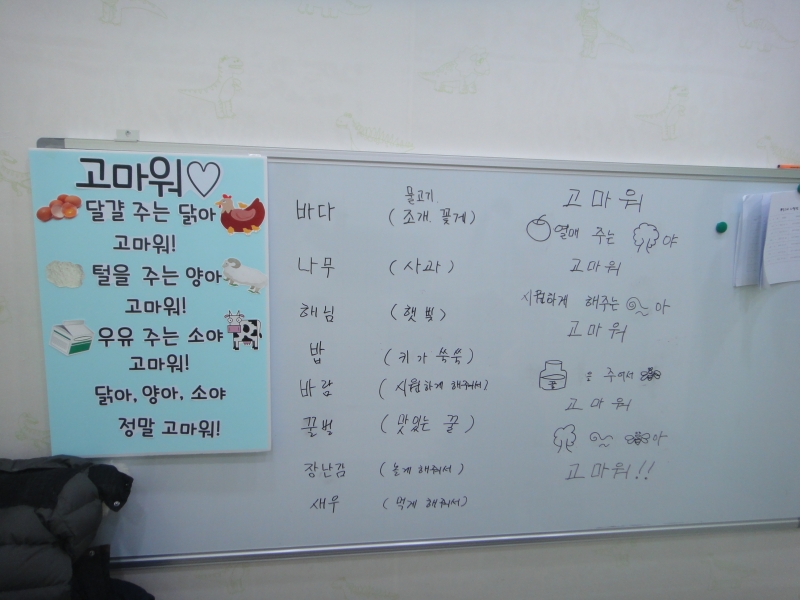 고마워♡
달걀 주는 닭아
고마워!
털을 주는 양아
고마워!
우유 주는 소야
고마워!
닭아, 양아, 소야
정말 고마워!
물고기
바다 (조개, 꽃게)
나무 (사과)
해님 (햇빛)
밥 (키가 쑥쑥)
바람 (시원하게 해줘서)
꿀벌 (맛있는 꿀)
장난감 (놀게 해줘서)
새우 (먹게 해줘서)
고마워
열매 주는 야
고마워
시원하게 해주는 아
고마워
을 주어서
고마워
아
고마워!!